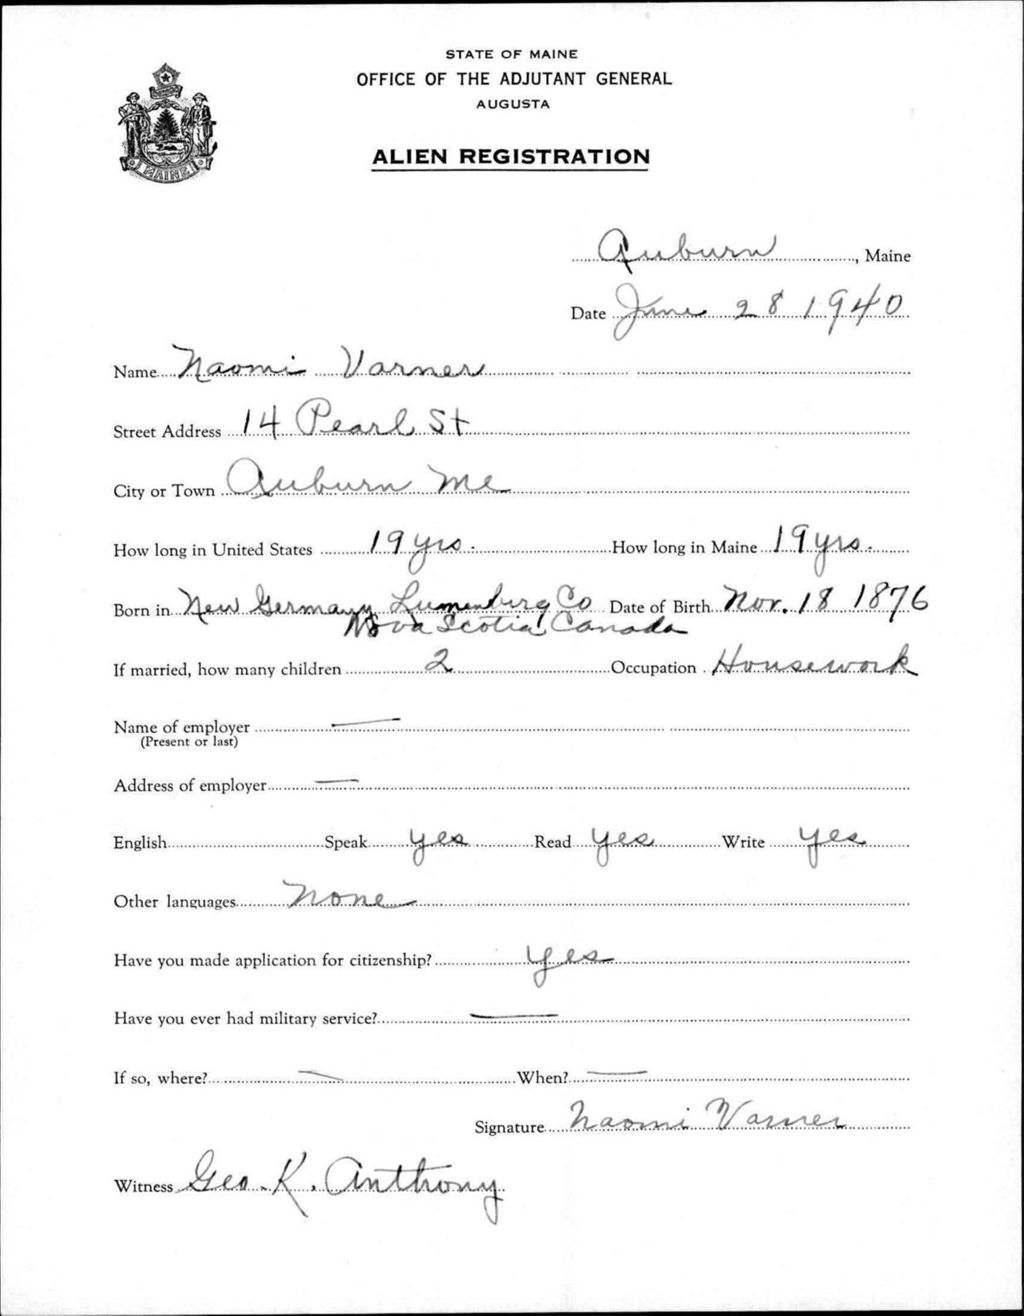 STATE OF MAINE
OFFICE OF THE ADJUTANT GENERAL
AUGUSTA
ALIEN REGISTRATION
MAINE
Auburn, Maine
Date June 28 1940
Name Naomi Varner
Street Address 14 Pearl St
City or Town Auburn Me
How long in United States 19 yrs. How long in Maine 19 yrs.
Born in New Germany Lunenburg Co Date of Birth Nov. 18 1876
Nova Scotia Canada
If married, how many children 2 Occupation Housework
Name of employer —
(Present or last)
Address of employer —
English Speak yes Read yes Write yes
Other languages None
Have you made application for citizenship? yes
Have you ever had military service? —
If so, where? — When? —
Signature Naomi Varner
Witness Geo. K. Anthony